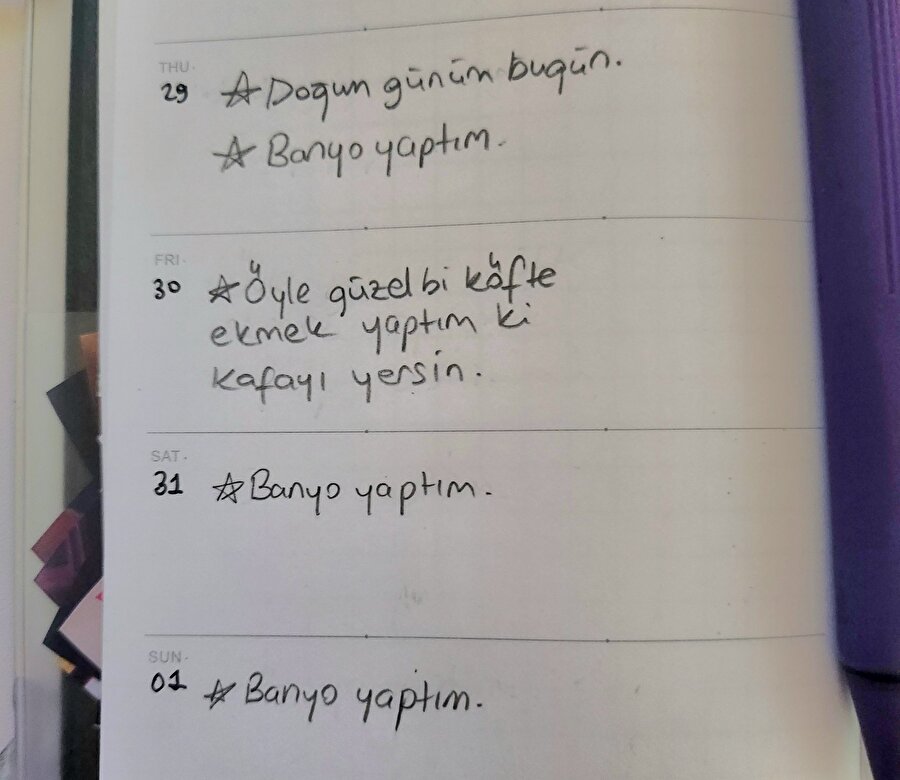 THU.
29 ☆ Doğum günüm bugün.
☆ Banyo yaptım.
FRI.
30 ☆ Öyle güzel bi köfte
ekmek yaptım ki
kafayı yersin.
SAT.
31 ☆ Banyo yaptım.
SUN.
01 ☆ Banyo yaptım.